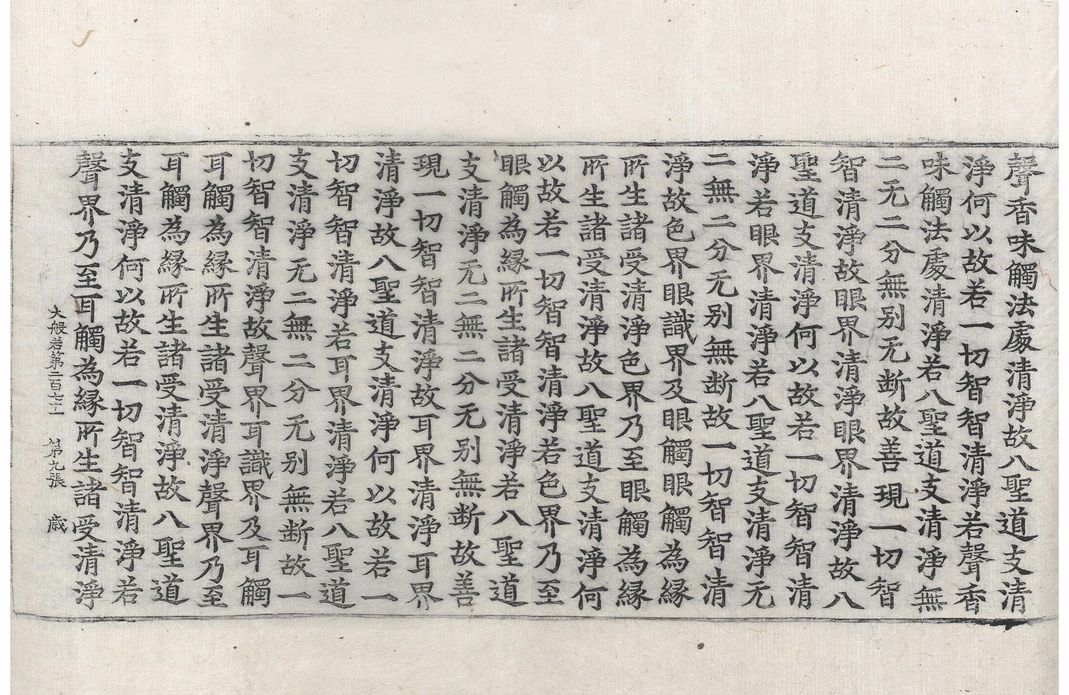 聲香味觸法處清淨故八聖道支清
淨何以故若一切智智清淨若聲香
味觸法處清淨若八聖道支清淨無
二无二分無别无断故善現一切智
智清淨故眼界清淨眼界清淨故八
聖道支清淨何以故若一切智智清
淨若眼界清淨若八聖道支清淨无
二無二分无别無断故一切智智清
淨故色界眼識界及眼觸眼觸為緣
所生諸受清淨色界乃至眼觸為緣
所生諸受清淨故八聖道支清淨何
以故若一切智智清淨若色界乃至
眼觸為緣所生諸受清淨若八聖道
支清淨无二無二分无别無断故善
現一切智智清淨故耳界清淨耳界
清淨故八聖道支清淨何以故若一
切智智清淨若耳界清淨若八聖道
支清淨无二無二分无别無断故一
切智智清淨故聲界耳識界及耳觸
耳觸為緣所生諸受清淨聲界乃至
耳觸為緣所生諸受清淨故八聖道
支清淨何以故若一切智智清淨若
聲界乃至耳觸為緣所生諸受清淨
大般若第二百七 第九張 歲